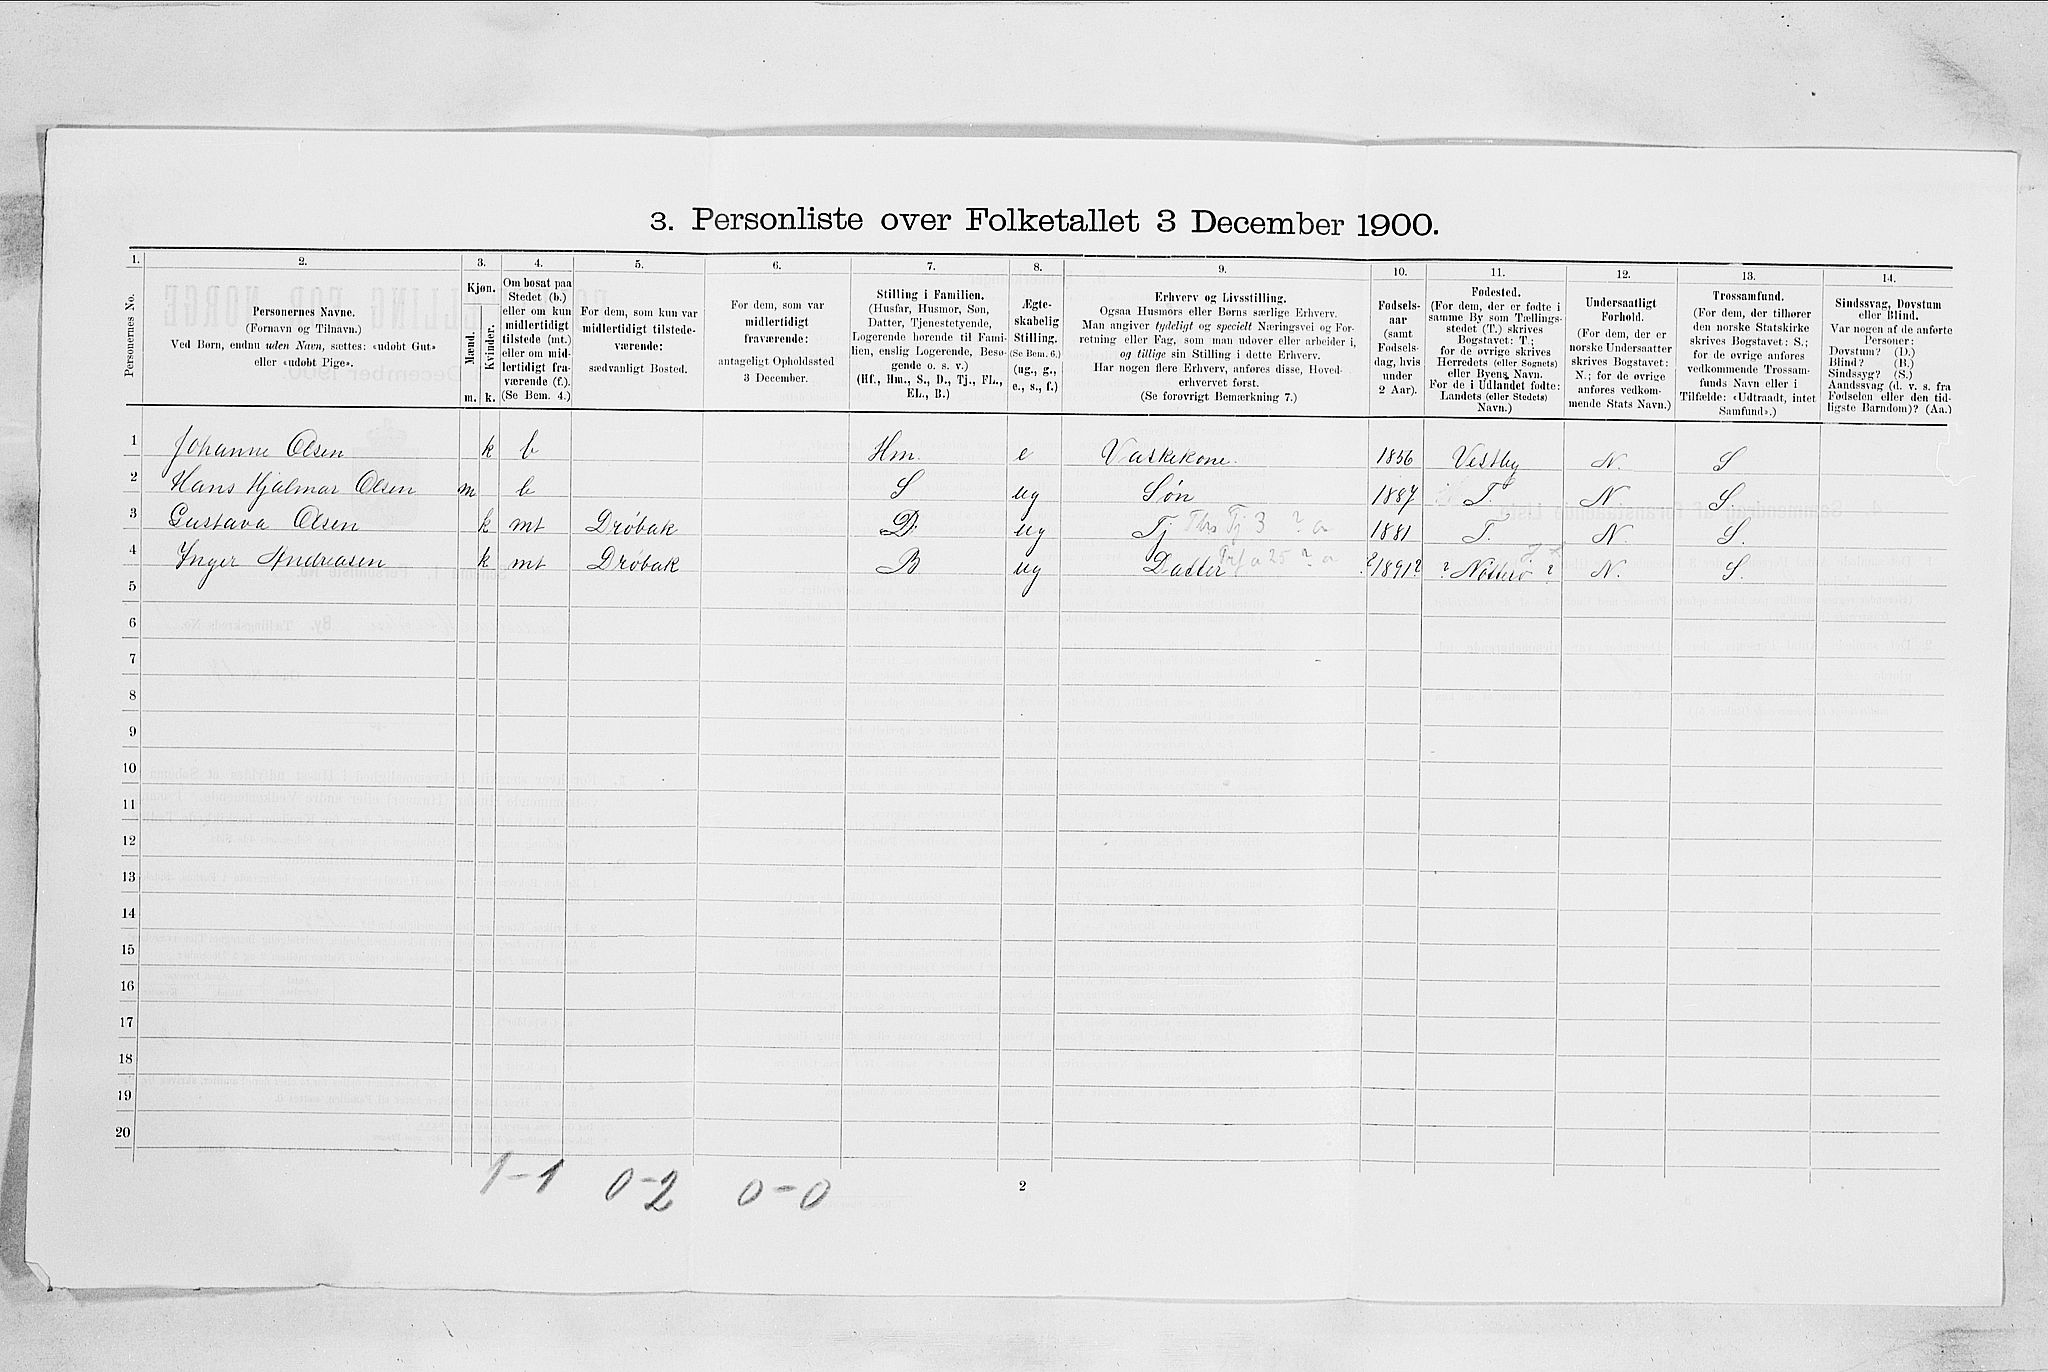 3. Personliste over Folketallet 3 December 1900.
1. 2. 3. 4. 5. 6. 7. 8. 9. 10. 11. 12. 13. 14.
Personernes No.
Personernes Navne.
(Fornavn og Tilnavn.)
Ved Børn, endnu uden Navn, sættes: «udøbt Gut»
eller «udøbt Pige».
Kjøn.
Mænd.
Kvinder.
m. k.
Om bosat paa
Stedet (b.)
eller om kun
midlertidigt
tilstede (mt.)
eller om mid-
lertidigt fra-
værende (f.).
(Se Bem. 4.)
For dem, som kun var
midlertidigt tilstede-
værende:
sædvanligt Bosted.
For dem, som var
midlertidigt
fraværende:
antageligt Opholdssted
3 December.
Stilling i Familien.
(Husfar, Husmor, Søn,
Datter, Tjenestetyende,
Logerende hørende til Fami-
lien, enslig Logerende, Besø-
gende o. s. v.)
(Hf., Hm., S., D., Tj., FL.,
EL., B.)
Ægte-
skabelig
Stilling.
(Se Bem. 6.)
(ug., g.,
e., s., f.)
Erhverv og Livsstilling.
Ogsaa Husmors eller Børns særlige Erhverv.
Man angiver tydeligt og specielt Næringsvei og For-
retning eller Fag, som man udøver eller arbeider i,
og tillige sin Stilling i dette Erhverv.
Har nogen flere Erhverv, anføres disse, Hoved-
erhvervet først.
(Se forøvrigt Bemærkning 7.)
Fødsels-
aar
(samt
Fødsels-
dag, hvis
under
2 Aar).
Fødested.
(For dem, der er fødte i
samme By som Tællings-
stedet (T.) skrives
Bogstavet: T.;
for de øvrige skrives
Herredets (eller Sognets)
eller Byens Navn.
For de i Udlandet fødte:
Landets (eller Stedets)
Navn.)
Undersaatligt
Forhold.
(For dem, der er
norske Undersaatter
skrives Bogstavet:
N.; for de øvrige
anføres vedkom-
mende Stats Navn.)
Trossamfund.
(For dem, der tilhører
den norske Statskirke
skrives Bogstavet: S.;
for de øvrige anføres
vedkommende Trossam-
funds Navn eller i
Tilfælde: «Udtraadt, intet
Samfund».)
Sindssvag, Døvstum
eller Blind.
Var nogen af de anførte
Personer:
Døvstum? (D.)
Blind? (B.)
Sindssyg? (S.)
Aandssvag (d. v. s. fra
Fødselen eller den tid-
ligste Barndom)? (Aa.)
1 Johanne Olsen k b Hm. e Vaskekone. 1856 Vestby N. S
2 Hans Hjalmar Olsen m b S ug Søn 1887 T. N S.
3 Gustava Olsen k mt Drøbak D. ug Tj Tj 3 ? a 1881 T. N. S.
4 Inger Andreasen k mt Drøbak B ug Datter a 25 ? a ? 1891? ? Nøtterø ? N. S.
5
6
7
8
9
10
11
12
13
14
15
16
17
18
19
20
1-1 0-2 0-0
2